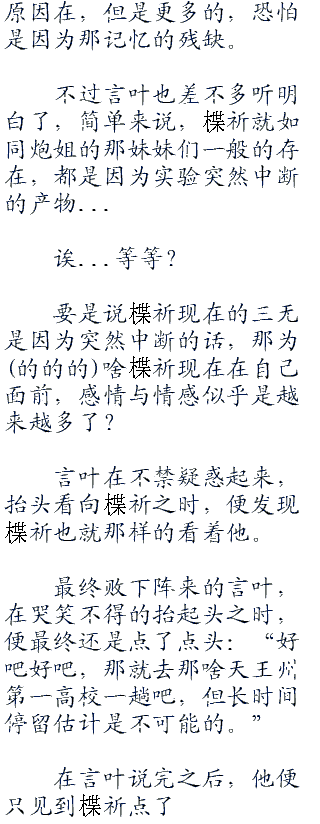 原因在，但是更多的，恐怕
是因为那记忆的残缺。
不过言叶也差不多听明
白了，简单来说，楪祈就如
同炮姐的那妹妹们一般的存
在，都是因为实验突然中断
的产物...
诶...等等？
要是说楪祈现在的三无
是因为突然中断的话，那为
(的的的)啥楪祈现在在自己
面前，感情与情感似乎是越
来越多了？
言叶在不禁疑惑起来，
抬头看向楪祈之时，便发现
楪祈也就那样的看着他。
最终败下阵来的言叶，
在哭笑不得的抬起头之时，
便最终还是点了点头：“好
吧好吧，那就去那啥天王州
第一高校一趟吧，但长时间
停留估计是不可能的。”
在言叶说完之后，他便
只见到楪祈点了